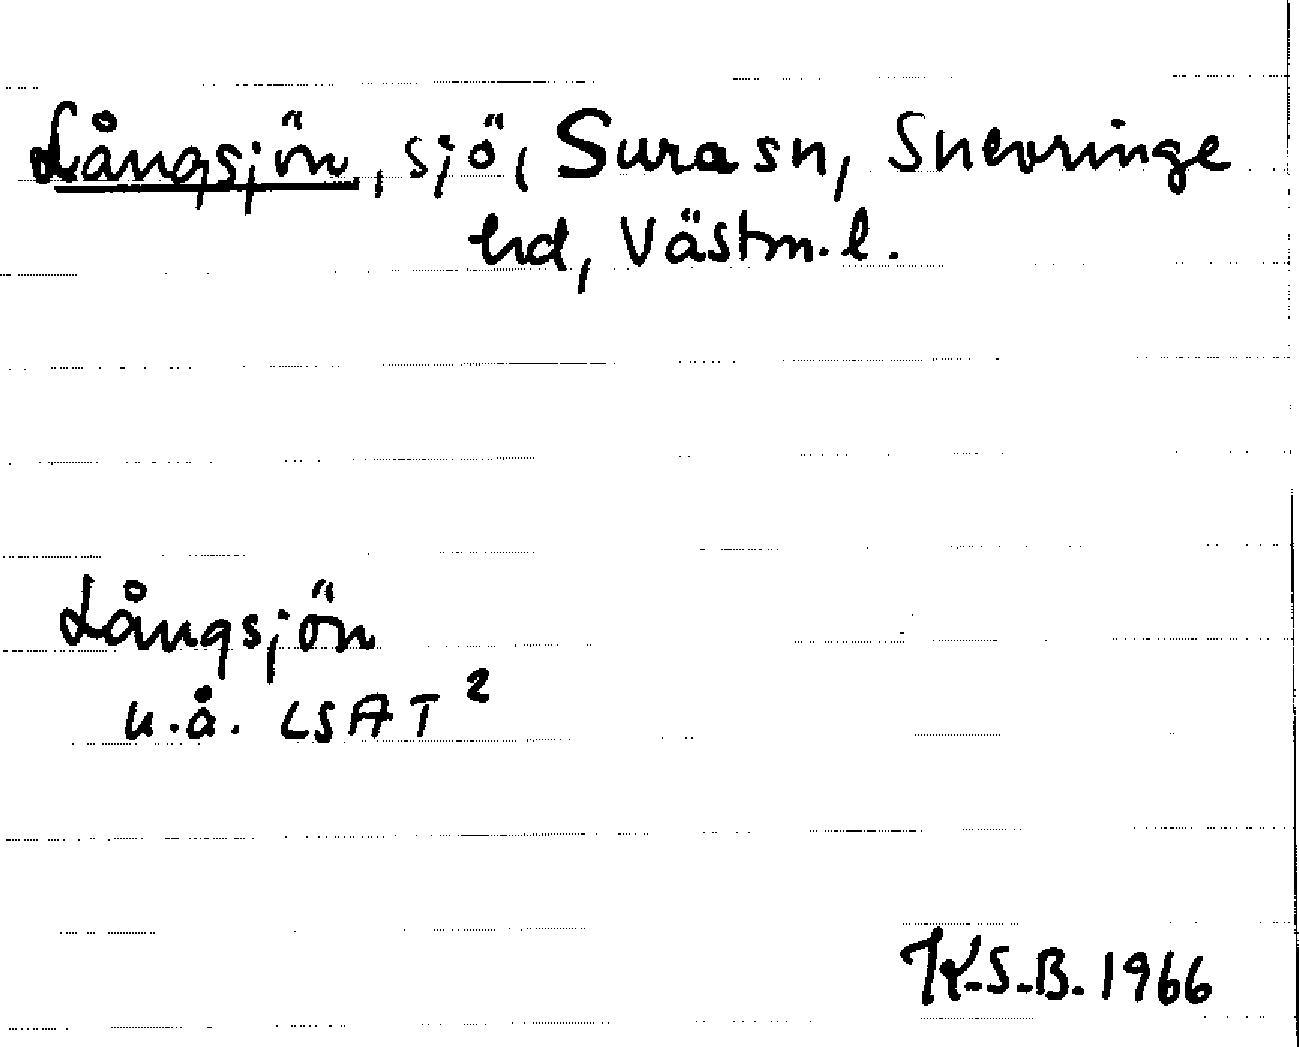 Långsjön, sjö, Sura sn, Snevringe
hd, Västm. l.
Långsjön
u.å. LSAT 2
K.S.B. 1966